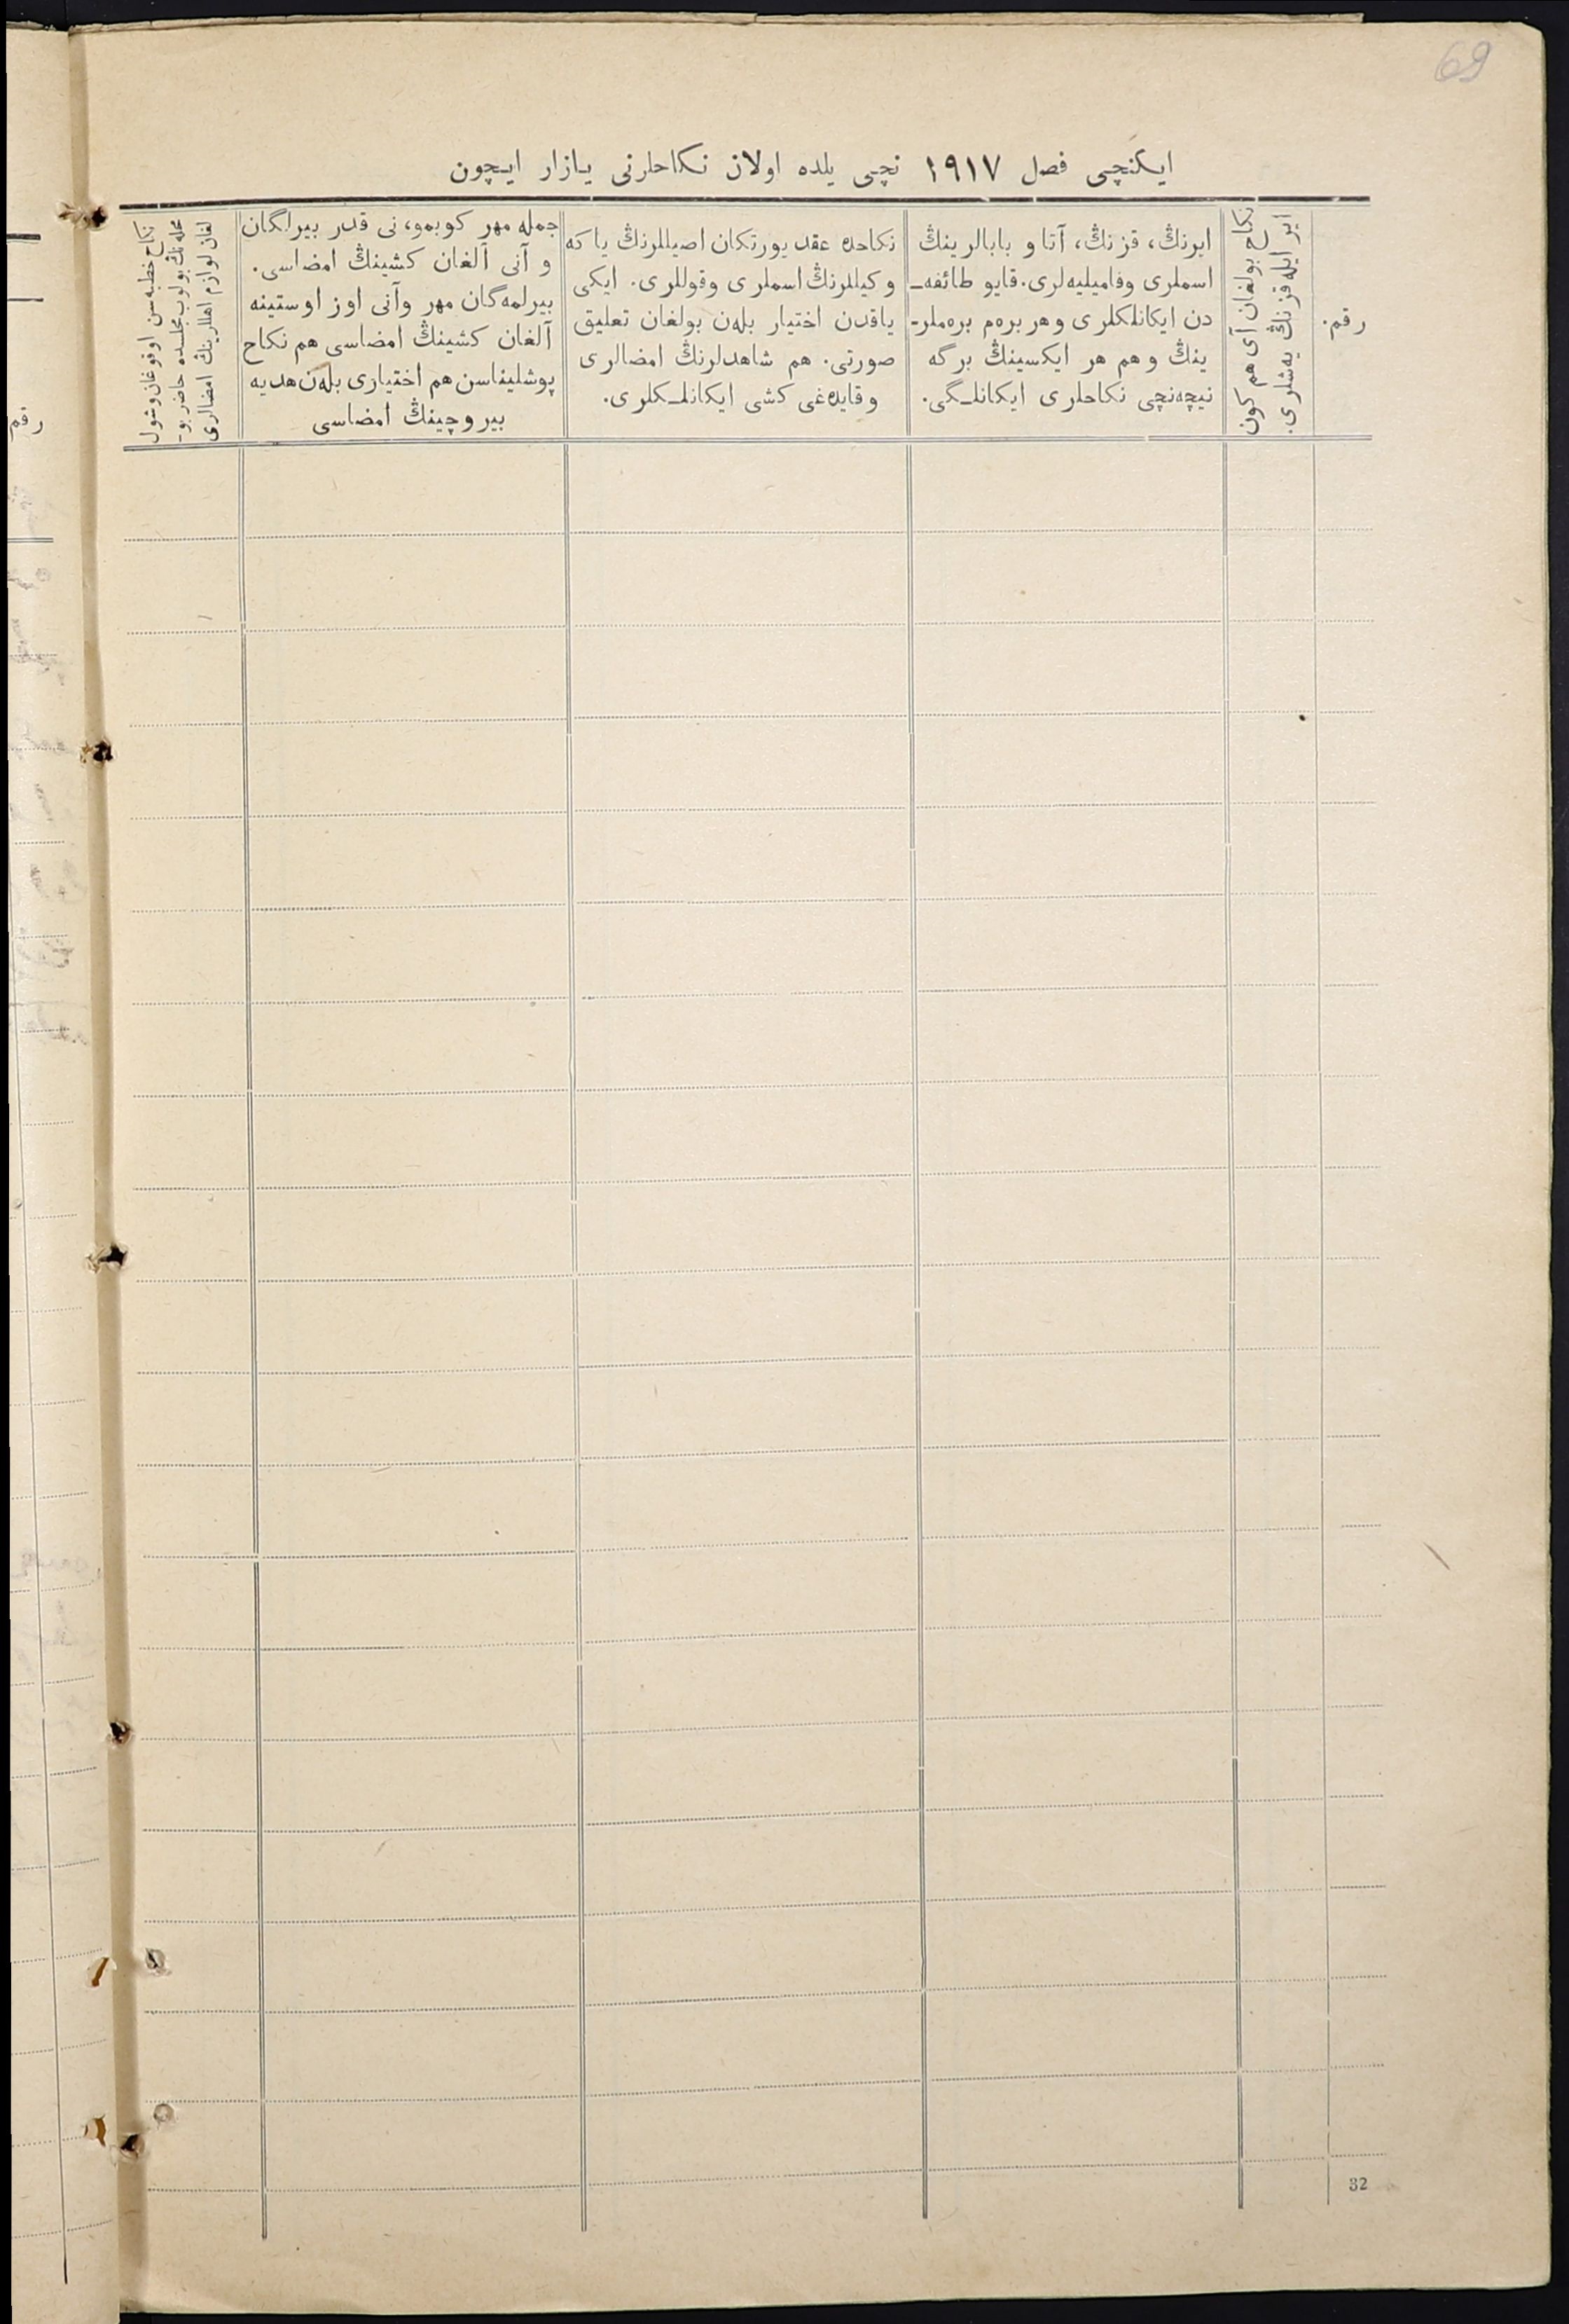 69
ایکنچی فصل ١٩١٧ نچی یلده اولان نکاحلرنی یازار ایچون
رقم.
ایر ایله قزنڭ یه‌شلری.
نکاح بولغان آی هم کون
ایرنڭ، قزنڭ، آتا و بابالرینڭ
اسملری وفامیلیه‌لری. قایو طائفه‌ـ
دن ایکانلکلری وهر بره‌م بره‌ملرـ
ینڭ وهم هر ایکسینڭ برگه
نیچه‌نچی نکاحلری ایکانلـگی.
نکاحده عقد یورتکان اصیللرنڭ یا که
وکیللرنڭ اسملری وقوللری. ایکی
یاقدن اختیار بله‌ن بولغان تعلیق
صورتی. هم شاهدلرنڭ امضالری
وقایده‌غی کشی ایکانلـکلری.
جمله مهر کوبمو، نی قدر بیرلگان
و آنی آلغان کشینڭ امضاسی.
بیرلمه‌گان مهر وآنی اوز اوستینه
آلغان کشینڭ امضاسی هم نکاح
پوشلیناسن هم اختیاری بله‌ن هدیه
بیروچینڭ امضاسی
نکاح خطبه‌سن اوقوغان وشول
محله‌نڭ بولوب مجلسده حاضر بوـ
لغان لوازم اهللرینڭ امضالری
رقم
32